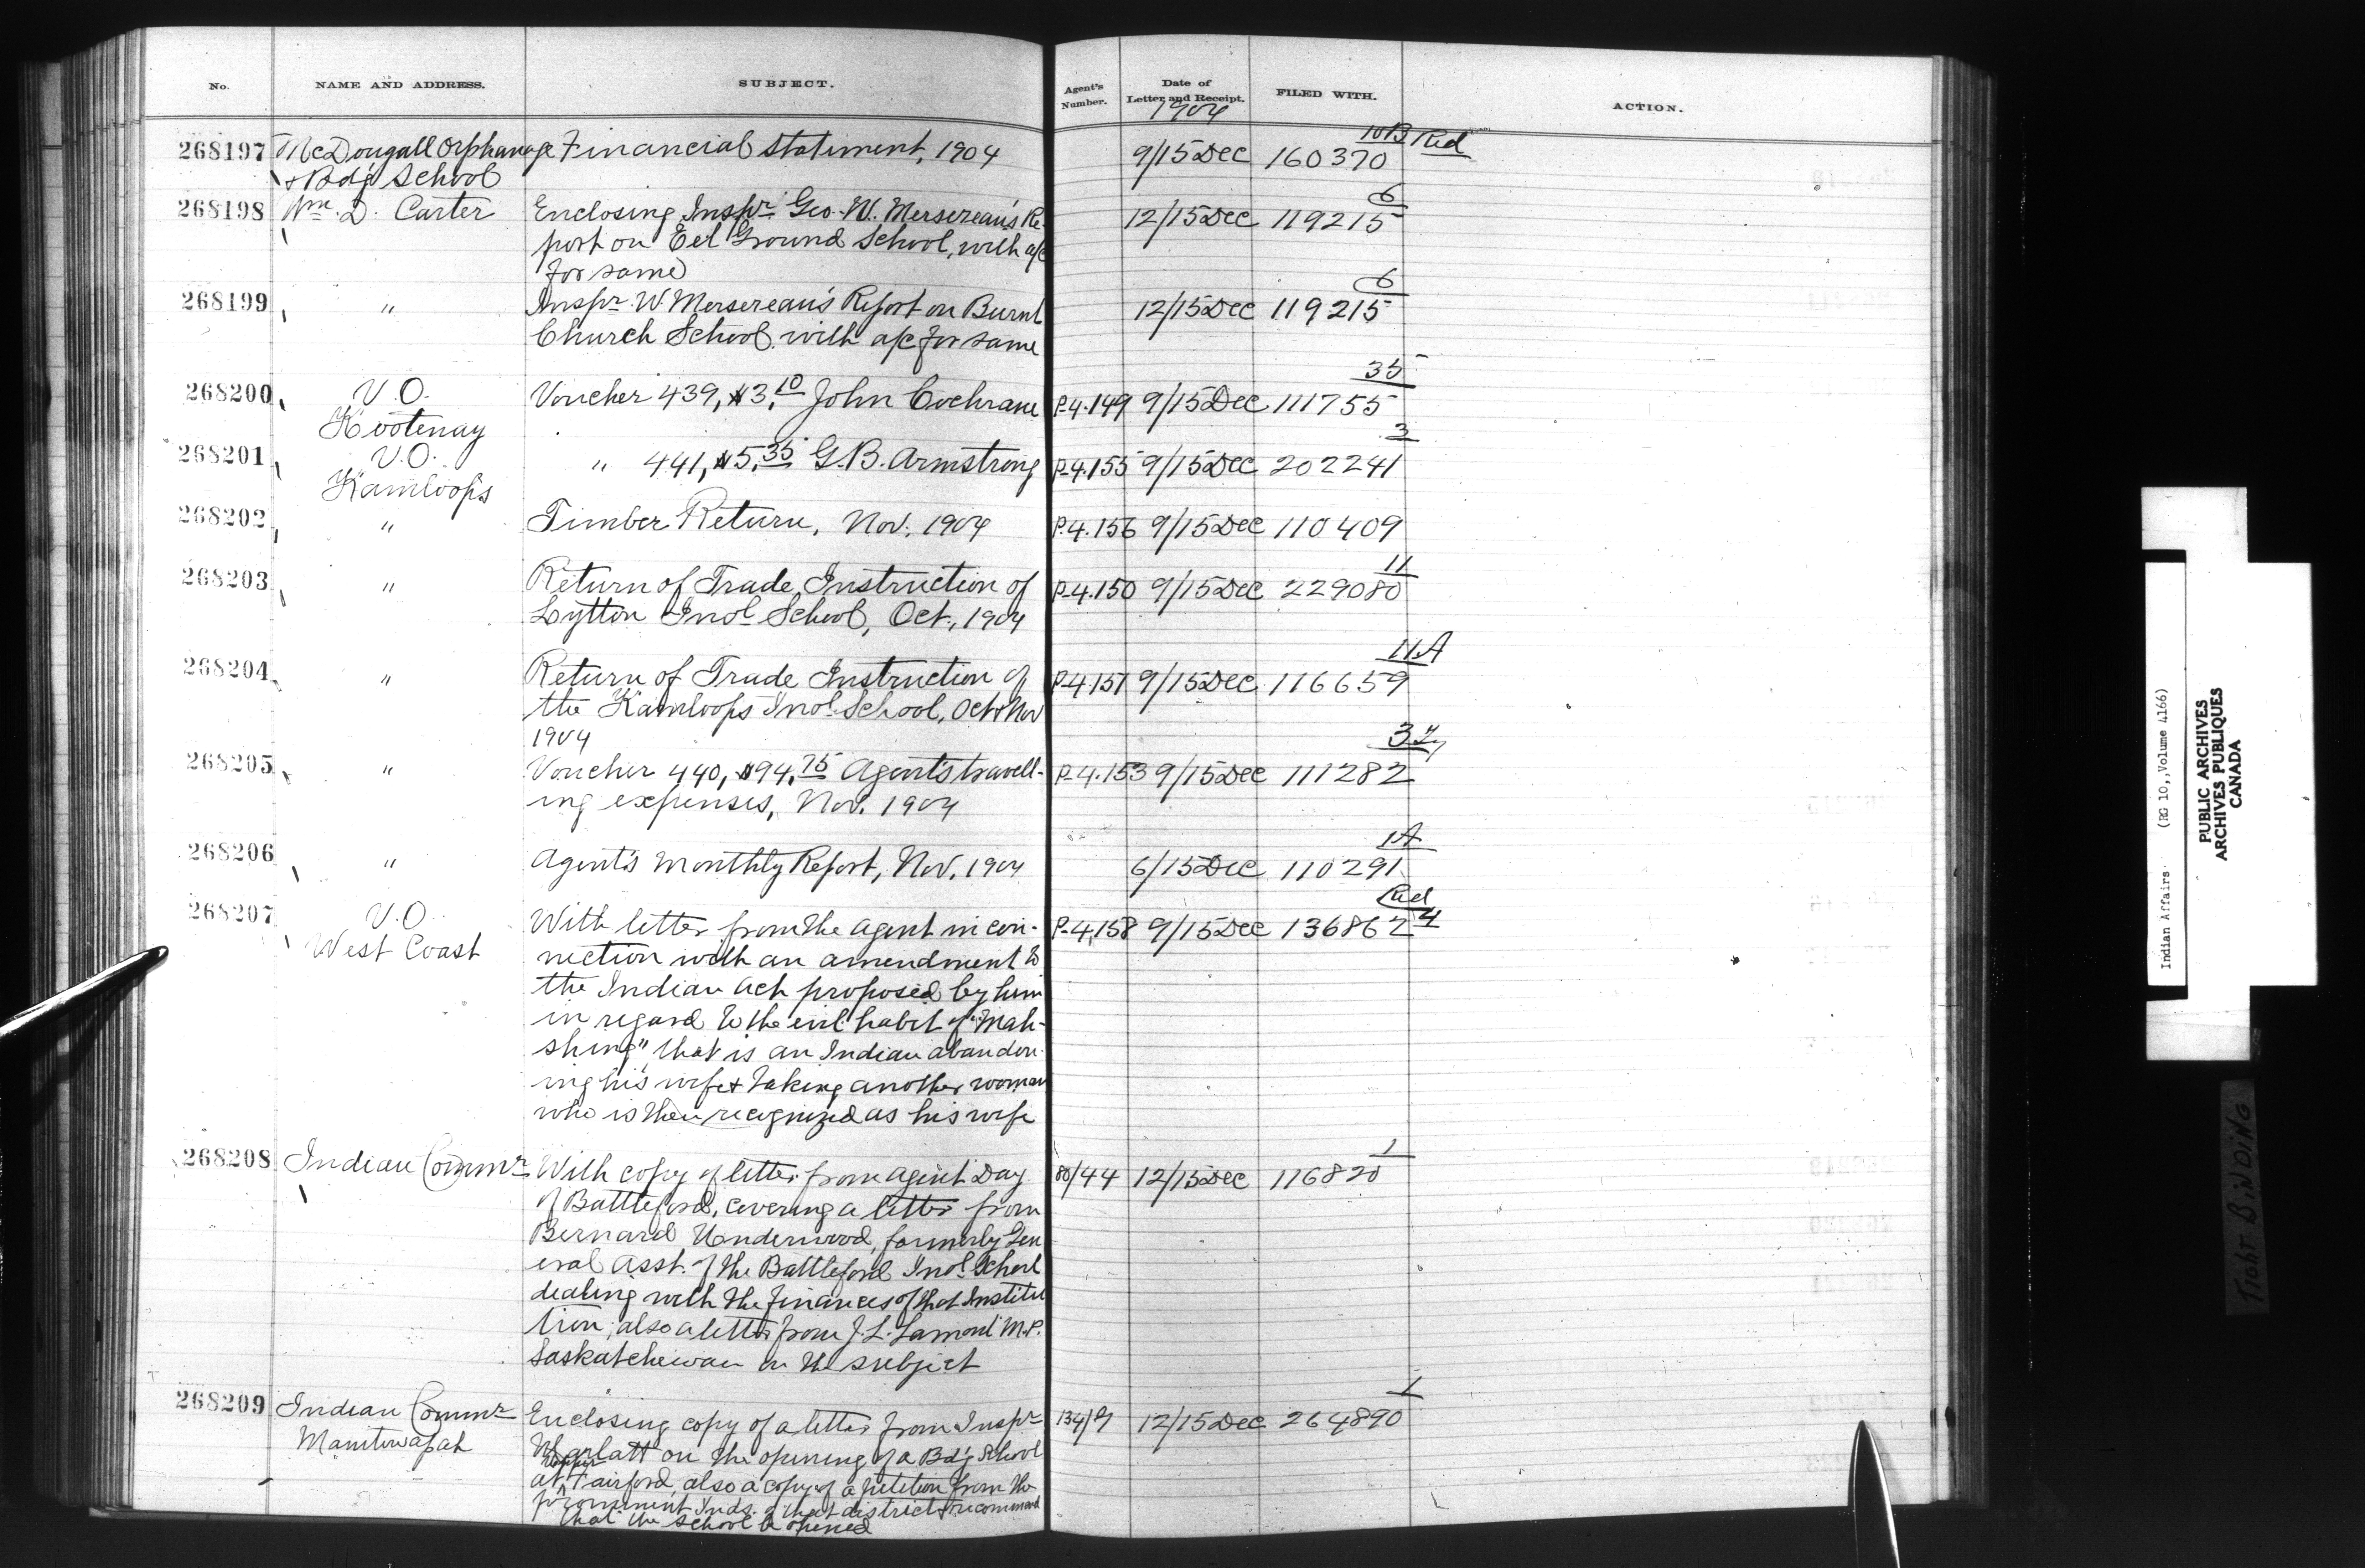 No. NAME AND ADDRESS. SUBJECT. Agent's Number. Date of Letter and Receipt. FILED WITH. ACTION.
1904
268197 McDougall Orphanage Financial Statement, 1904 9/15 Dec 160370 10B Red
& Bdg School
268198 Wm. D. Carter Enclosing Inspr. Geo. W. Mersereau's Re- 12/15 Dec 119215 6
port on Eel Ground School, with a/c
for same
268199 " Inspr. W. Mersereau's Report on Burnt 12/15 Dec 119215 6
Church School with a/c for same
268200 V.O. Voucher 439, $3.10 John Cochrane P-4.149 9/15 Dec 111755 35
Kootenay
268201 V.O. " 441, $5.35 G.B. Armstrong P-4.155 9/15 Dec 202241 3
Kamloops
268202 " Timber Return, Nov. 1904 P.4.156 9/15 Dec 110409
268203 " Return of Trade Instruction of P-4.150 9/15 Dec 229080 11
Lytton Indl School, Oct., 1904
268204 " Return of Trade Instruction of P-4.151 9/15 Dec 116659 11A
the Kamloops Indl School, Oct & Nov
1904
268205 " Voucher 440, $94.75 Agent's travell- P-4.153 9/15 Dec 111282
ing expenses, Nov. 1904
268206 " Agent's Monthly Report, Nov. 1904 6/15 Dec 110291 1A
268207 V.O. With letter from the Agent in con- P-4.158 9/15 Dec 136862 4 Red
West Coast nection with an amendment to
the Indian Act proposed by him
in regard to the evil habit of "Mah-
shing" that is an Indian abandon-
ing his wife & taking another woman
who is then recognized as his wife
268208 Indian Commr With copy of letter from Agent Day 80/44 12/15 Dec 116820 1
of Battleford, covering a letter from
Bernard Underwood, formerly Gen
eral Asst. of the Battleford Indl School
dealing with the finances of that Institu
tion; also a letter from J.L. Lamont M.P.
Saskatchewan on the subject
268209 Indian Commr Enclosing copy of a letter from Inspr 12/15 Dec 264890 1
Manitowapah Marlatt on the opening of a Bdg School
at Upper Fairford, also a copy of a petition from the
prominent Inds. of that district & recommend
that the school be opened
Indian Affairs. (RG 10, Volume 4166)
PUBLIC ARCHIVES
ARCHIVES PUBLIQUES
CANADA
TIGHT BINDING